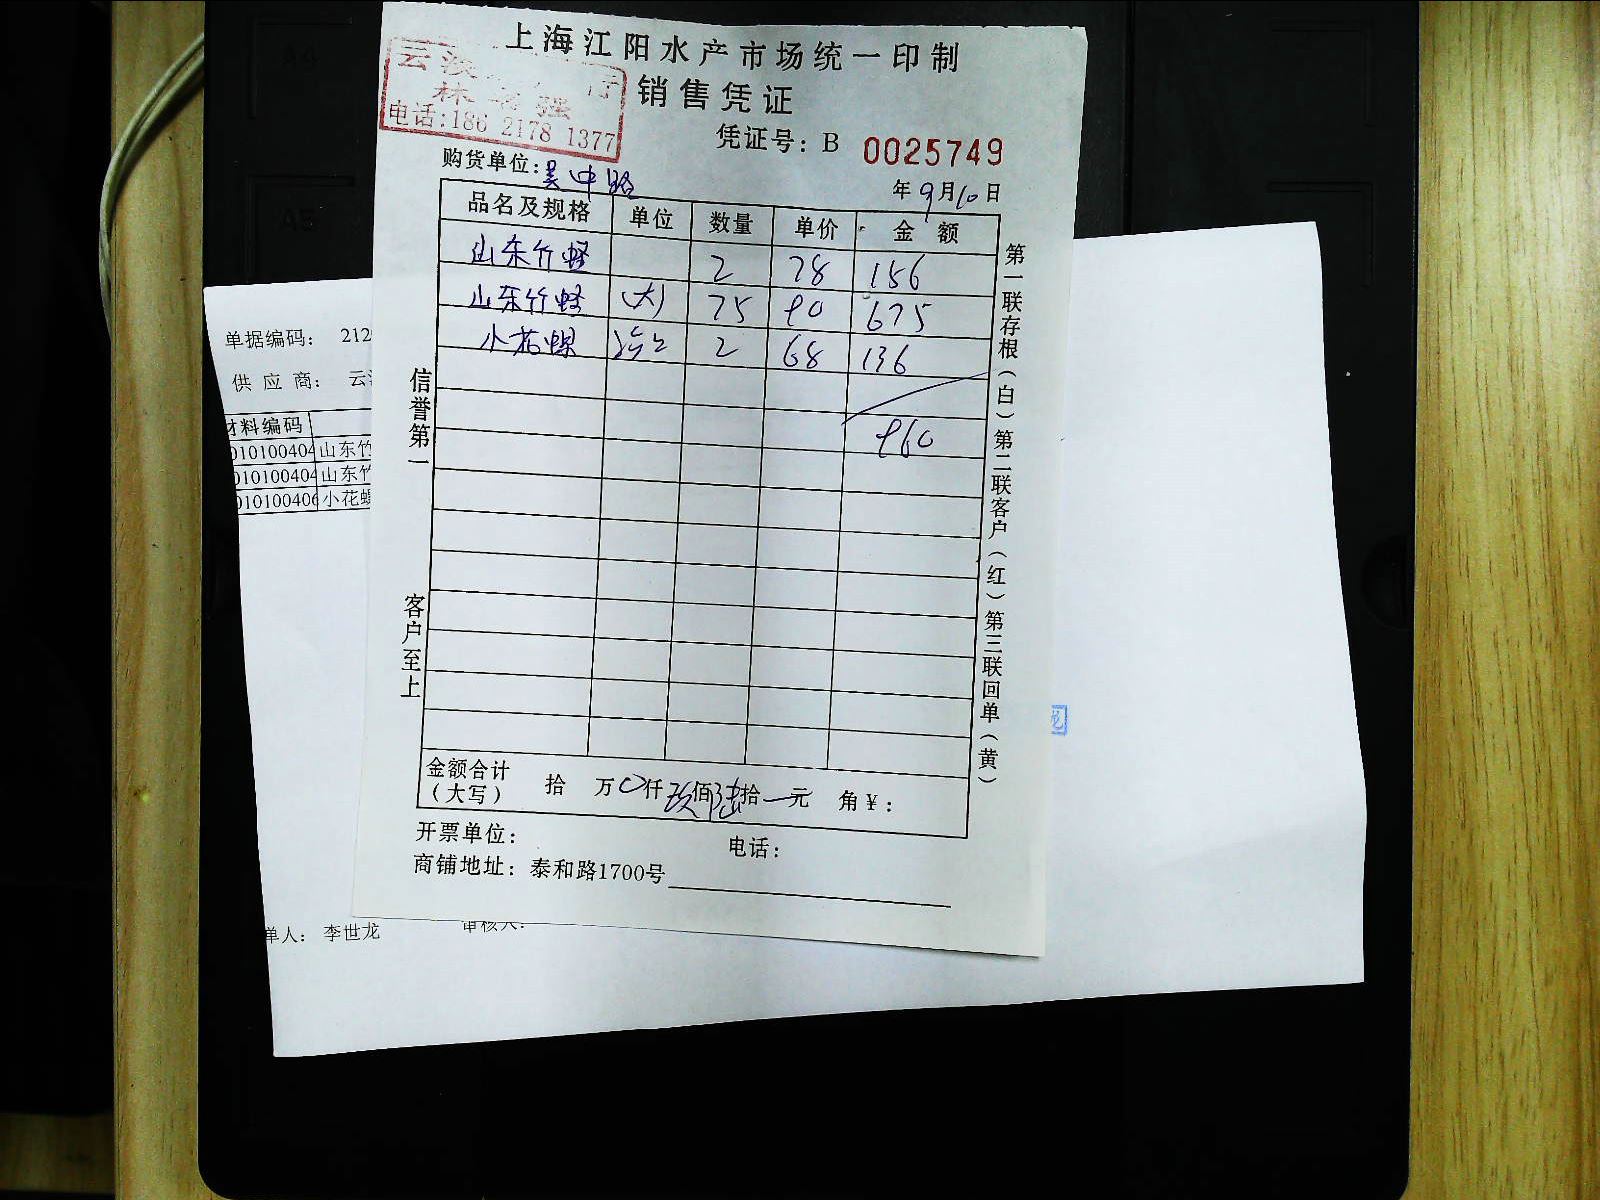 上海江阳水产市场统一印制
销售凭证
电话:186 2178 1377
凭证号: B 0025749
购货单位: 吴中路
年9月10日
品名及规格 单位 数量 单价 金额
山东竹蛏 2 78 156
山东竹蛏 (大) 75 90 675
小花螺 2 68 136
960
金额合计(大写) 拾 万 0仟 玖佰陆拾 元 角¥:
开票单位: 电话:
商铺地址: 泰和路1700号
信誉第一 客户至上
第一联存根(白) 第二联客户(红) 第三联回单(黄)
单据编码: 212
供应商: 云
材料编码
010100404 山东竹
010100404 山东竹
010100406 小花螺
单人: 李世龙
审核人: